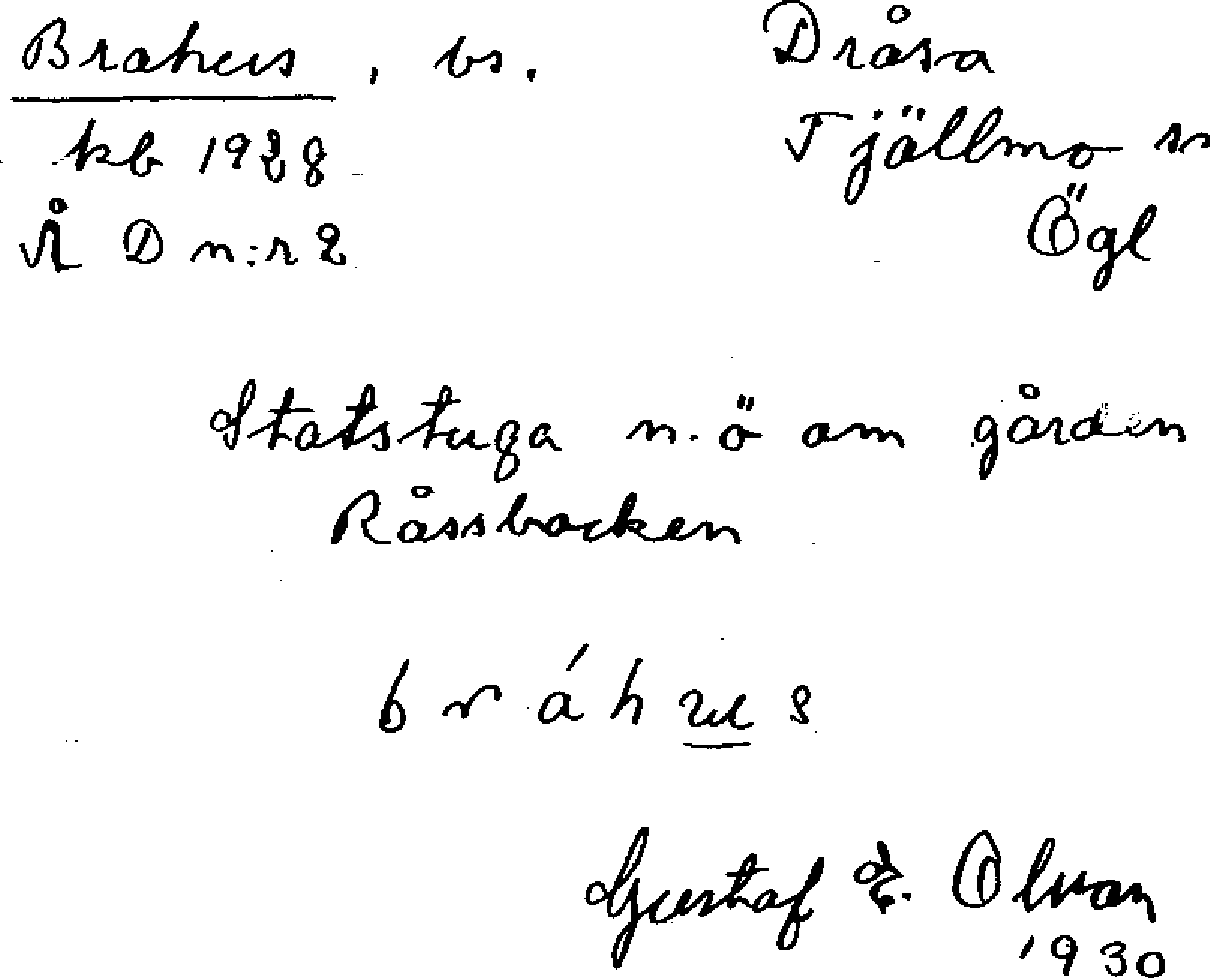 Brahus, bs.
kb 1928
Å D n:r 2
Dråsa
Tjällmo sn
Ögl
Statstuga n.ö om gården
Råssbacken
b r á h u s
Gustaf E. Olvan
1930